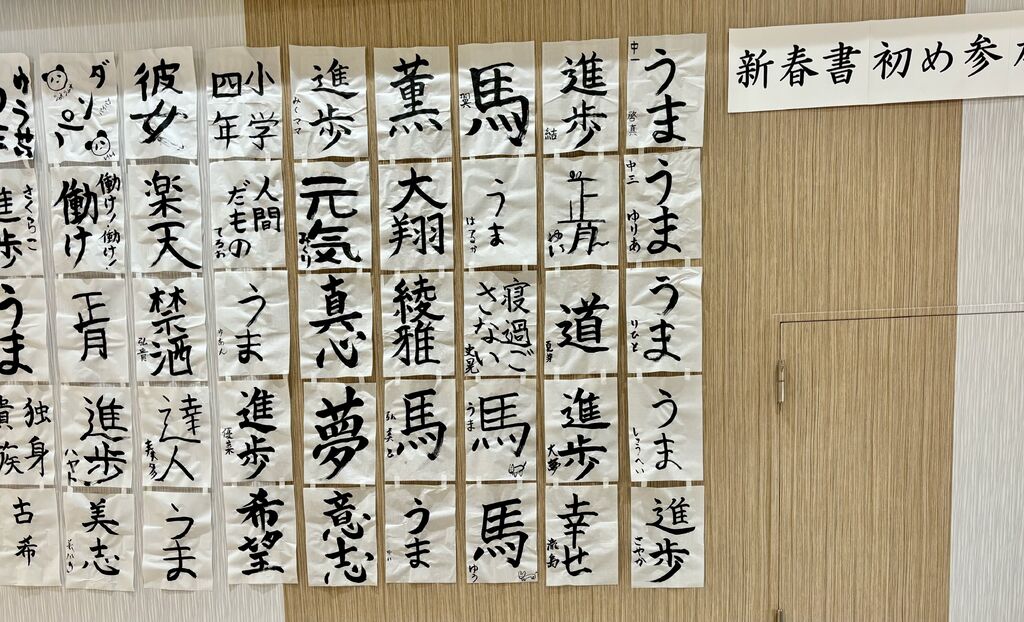 新春書初め参
うま
中一
啓真
うま
中三
ゆりあ
うま
りひと
うま
しょうへい
進歩
さやか
進歩
結
正月
ゆい
道
進歩
大夢
幸せ
馬
翼
うま
はるか
寝過ご
さない
馬
うま
馬
ゆう
薫
大翔
綾雅
馬
うま
進歩
みくママ
元気
真心
夢
意志
小学
四年
人間
だもの
てるお
うま
進歩
優菜
希望
彼女
楽天
禁酒
達人
うま
働け
働け!働け!
正月
進歩
ハヤト
美志
ゆうせい
進歩
さくらこ
うま
独身
貴族
古希